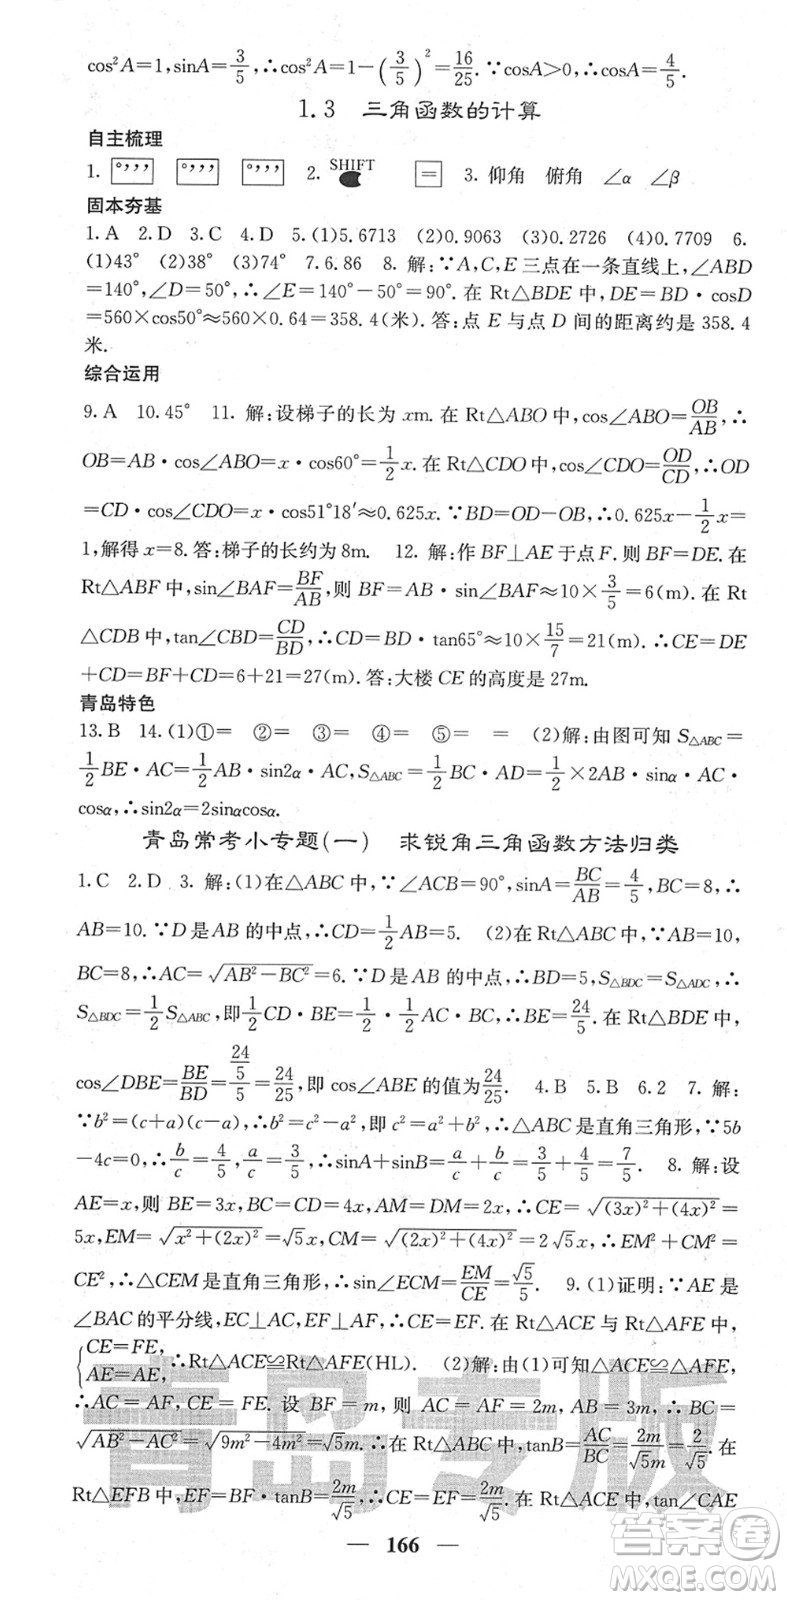 cos²A=1,sinA=3/5,∴cos²A=1-(3/5)²=16/25.∵cosA>0,∴cosA=4/5.
1.3 三角函数的计算
自主梳理
1. °,,, °,,, °,,, 2. SHIFT = 3. 仰角 俯角 ∠α ∠β
固本夯基
1.A 2.D 3.C 4.D 5.(1)5.6713 (2)0.9063 (3)0.2726 (4)0.7709 6.
(1)43° (2)38° (3)74° 7.6.86 8.解:∵A,C,E三点在一条直线上,∠ABD
=140°,∠D=50°,∴∠E=140°-50°=90°.在Rt△BDE中,DE=BD·cosD
=560×cos50°≈560×0.64=358.4(米).答:点E与点D间的距离约是358.4
米.
综合运用
9.A 10.45° 11.解:设梯子的长为xm.在Rt△ABO中,cos∠ABO=OB/AB,∴
OB=AB·cos∠ABO=x·cos60°=1/2x.在Rt△CDO中,cos∠CDO=OD/CD,∴OD
=CD·cos∠CDO=x·cos51°18′≈0.625x.∵BD=OD-OB,∴0.625x-1/2x=
1,解得x=8.答:梯子的长约为8m. 12.解:作BF⊥AE于点F.则BF=DE.在
Rt△ABF中,sin∠BAF=BF/AB,则BF=AB·sin∠BAF≈10×3/5=6(m).在Rt
△CDB中,tan∠CBD=CD/BD,∴CD=BD·tan65°≈10×15/7=21(m).∴CE=DE
+CD=BF+CD≈6+21=27(m).答:大楼CE的高度是27m.
青岛特色
13.B 14.(1)①= ②= ③= ④= ⑤= = (2)解:由图可知S△ABC=
1/2BE·AC=1/2AB·sin2α·AC,S△ABC=1/2BC·AD=1/2×2AB·sinα·AC·
cosα,∴sin2α=2sinαcosα.
青岛常考小专题(一) 求锐角三角函数方法归类
1.C 2.D 3.解:(1)在△ABC中,∵∠ACB=90°,sinA=BC/AB=4/5,BC=8,∴
AB=10.∵D是AB的中点,∴CD=1/2AB=5. (2)在Rt△ABC中,∵AB=10,
BC=8,∴AC=√(AB²-BC²)=6.∵D是AB的中点,∴BD=5,S△BDC=S△ADC,∴
S△BDC=1/2S△ABC,即1/2CD·BE=1/2·1/2AC·BC,∴BE=24/5.在Rt△BDE中,
cos∠DBE=BE/BD=(24/5)/5=24/25,即cos∠ABE的值为24/25. 4.B 5.B 6.2 7.解:
∵b²=(c+a)(c-a),∴b²=c²-a²,即c²=a²+b²,∴△ABC是直角三角形,∵5b
-4c=0,∴b/c=4/5,a/c=3/5,∴sinA+sinB=a/c+b/c=3/5+4/5=7/5. 8.解:设
AE=x,则BE=3x,BC=CD=4x,AM=DM=2x,∴CE=√((3x)²+(4x)²)=
5x,EM=√(x²+(2x)²)=√5x,CM=√((2x)²+(4x)²)=2√5x,∴EM²+CM²=
CE²,∴△CEM是直角三角形,∴sin∠ECM=EM/CE=√5/5. 9.(1)证明:∵AE是
∠BAC的平分线,EC⊥AC,EF⊥AF,∴CE=EF.在Rt△ACE与Rt△AFE中,
{CE=FE,
AE=AE,∴Rt△ACE≌Rt△AFE(HL). (2)解:由(1)可知△ACE≌△AFE,
∴AC=AF,CE=FE.设BF=m,则AC=AF=2m,AB=3m,∴BC=
√(AB²-AC²)=√(9m²-4m²)=√5m.∴在Rt△ABC中,tanB=AC/BC=2m/√5m=2/√5.在
Rt△EFB中,EF=BF·tanB=2m/√5,∴CE=EF=2m/√5.在Rt△ACE中,tan∠CAE
青岛专版
166
答案卷
MXQE.COM